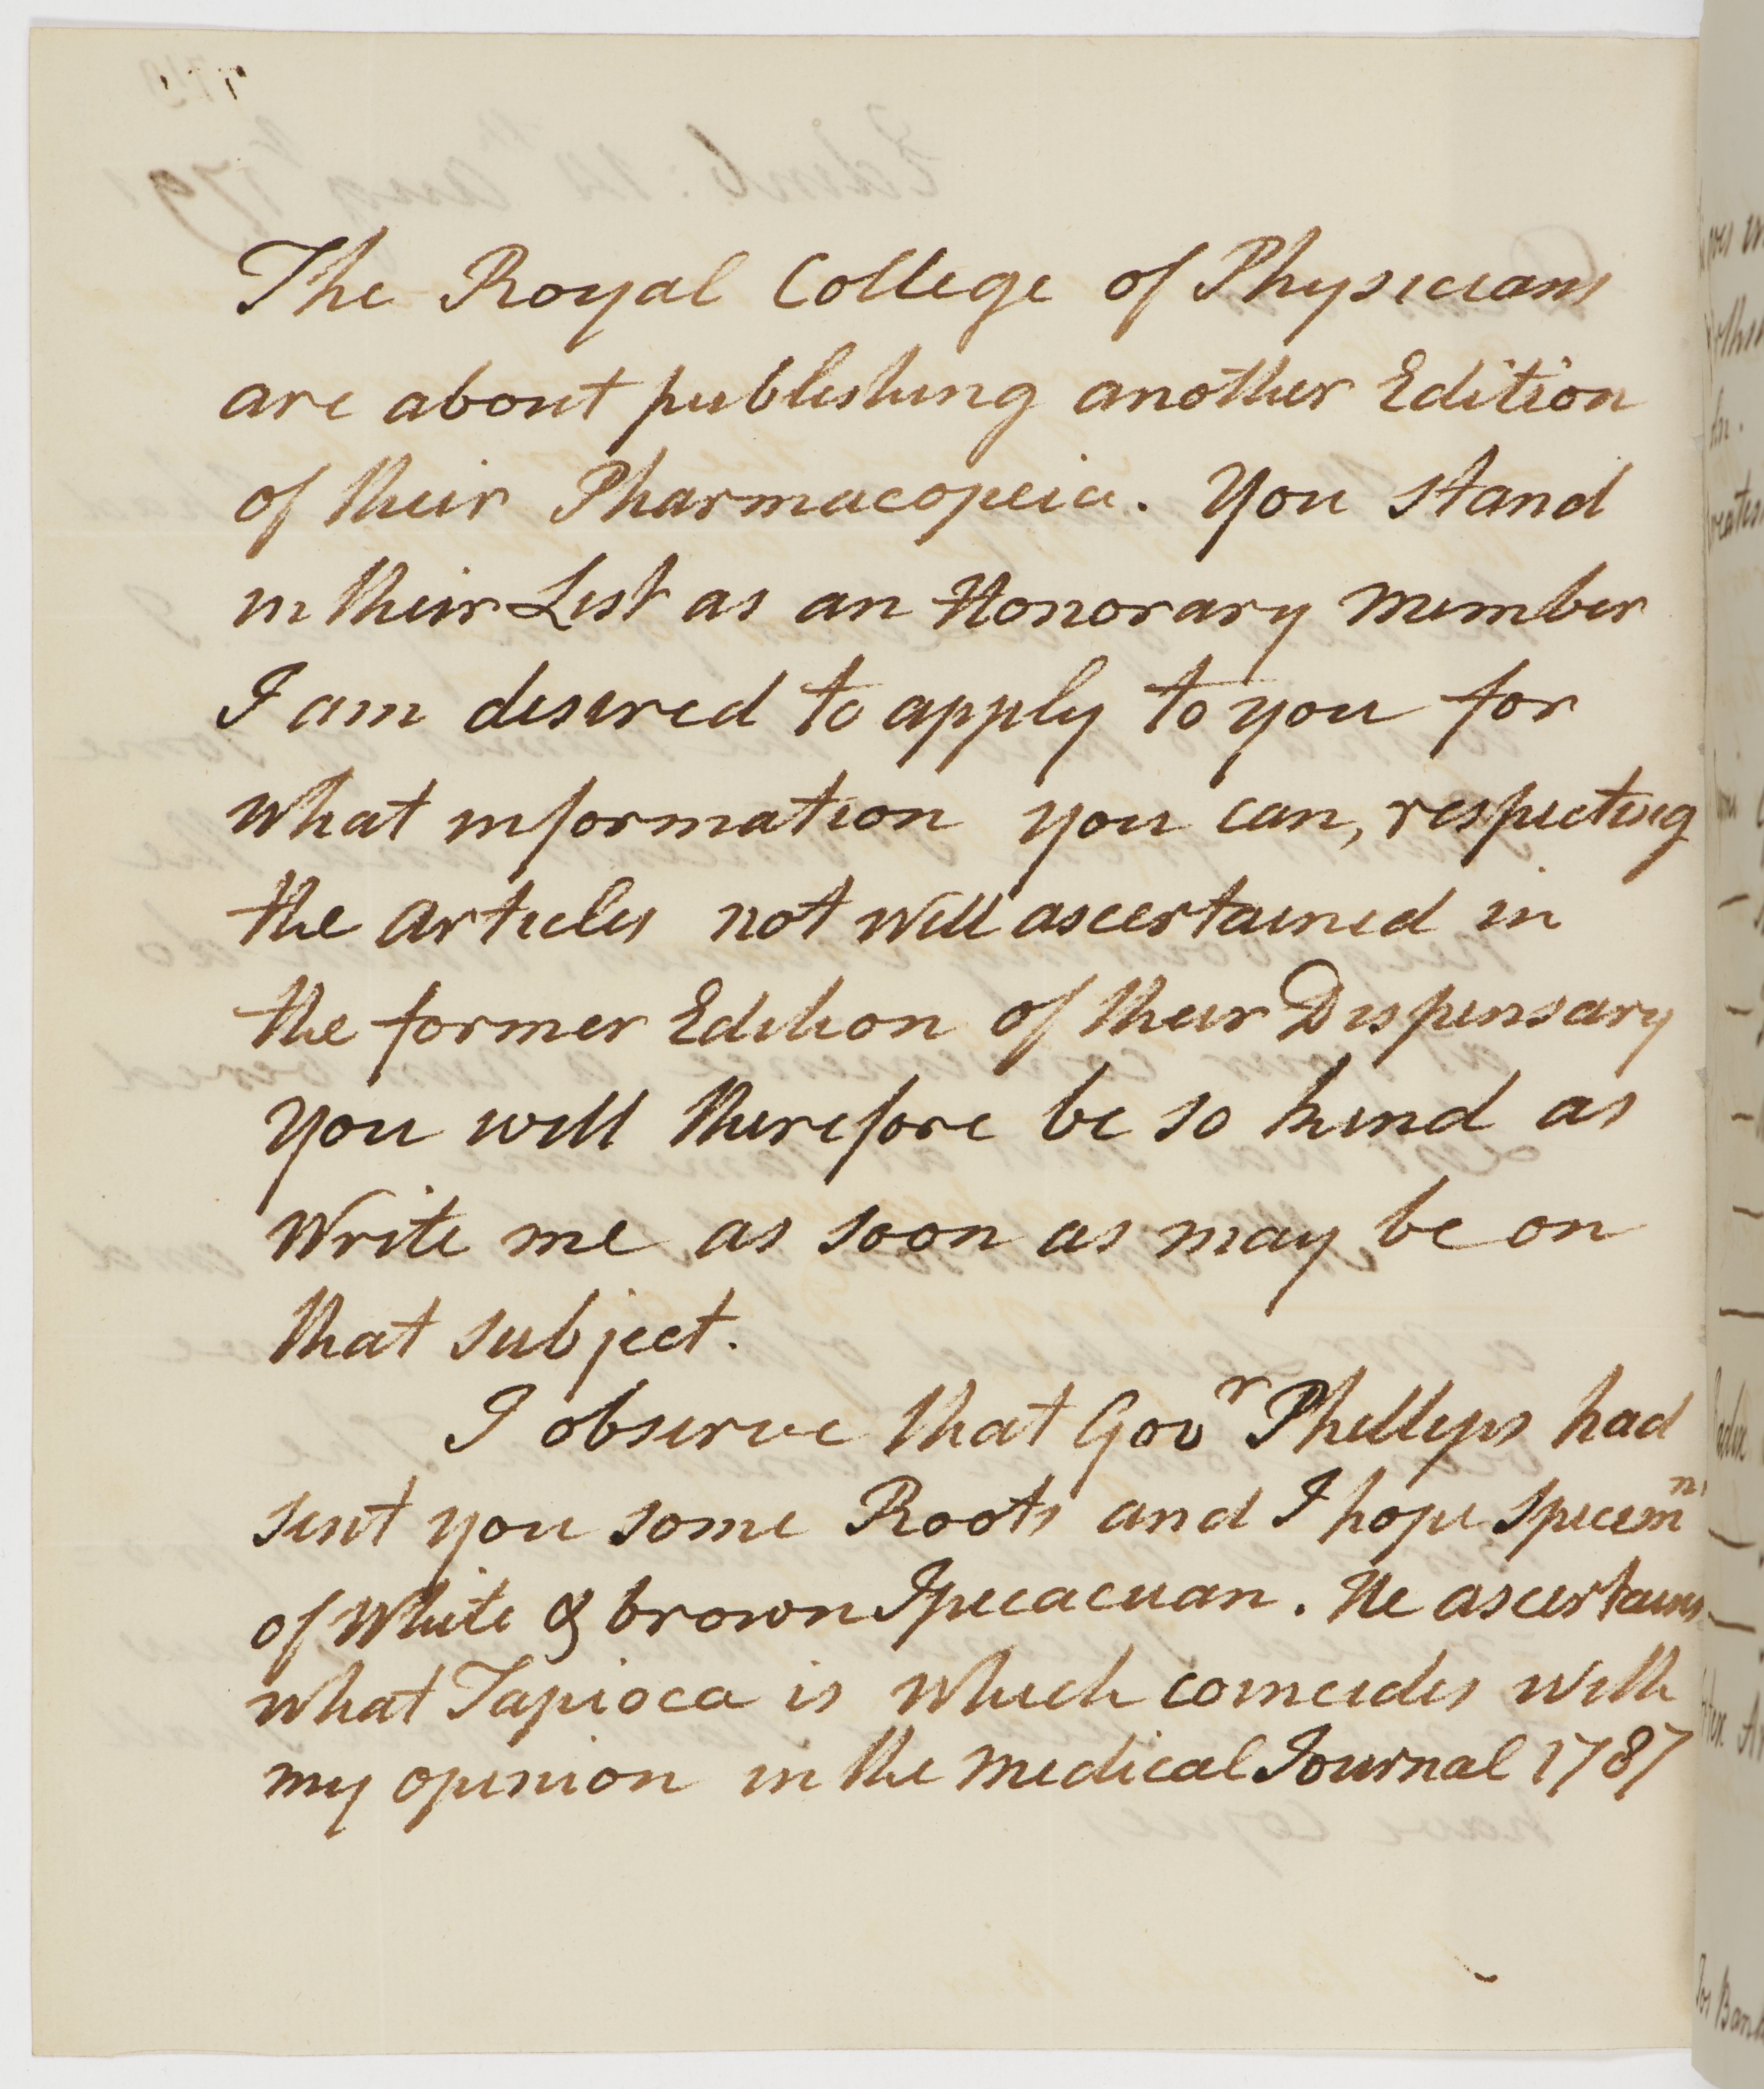 The Royal College of Physicians
are about publishing another Edition
of their Pharmacopeia. You stand
in their List as an Honorary Member
I am desired to apply to you for
what information you can, respecting
the articles not well ascertained in
the former Edition of their Dispensary
you will therefore be so kind as
Write me as soon as may be on
that subject.
I observe that Govr Phillips had
sent you some Roots and I hope specemns
of White & brown Ipecacuan. He ascertains
what Tapioca is which coincides with
my opinion in the Medical Journal 1787